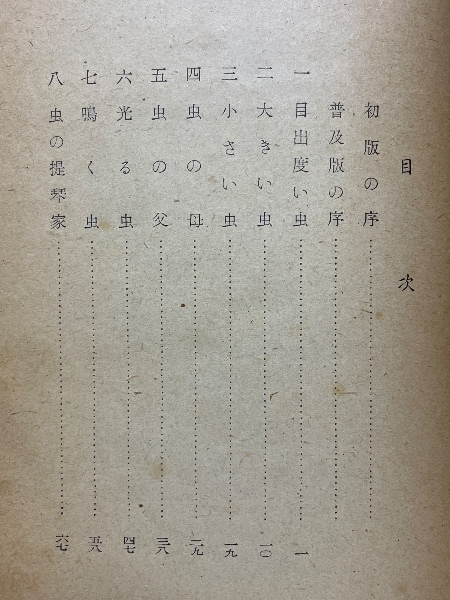 目次
初版の序
普及版の序
一 目出度い虫 一
二 大きい虫 一〇
三 小さい虫 一九
四 虫の母 二九
五 虫の父 三八
六 光る虫 四七
七 鳴く虫 五八
八 虫の提琴家 六七